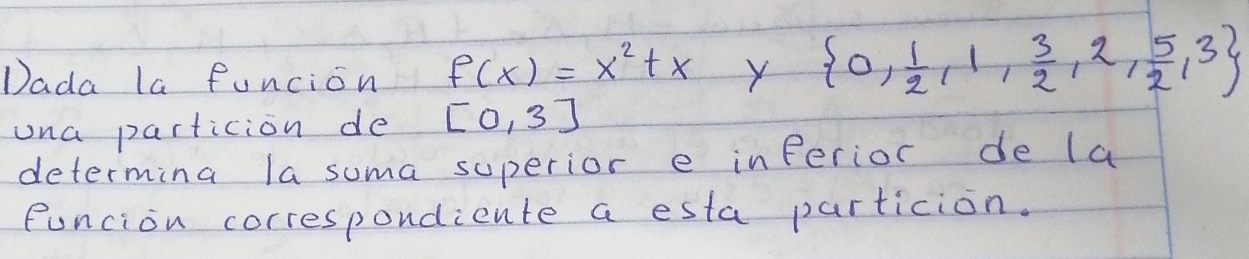 Dada la función f(x) = x²+x y {0, 1/2, 1, 3/2, 2, 5/2, 3}
una partición de [0,3]
determina la suma superior e inferior de la
función correspondiente a esta partición.